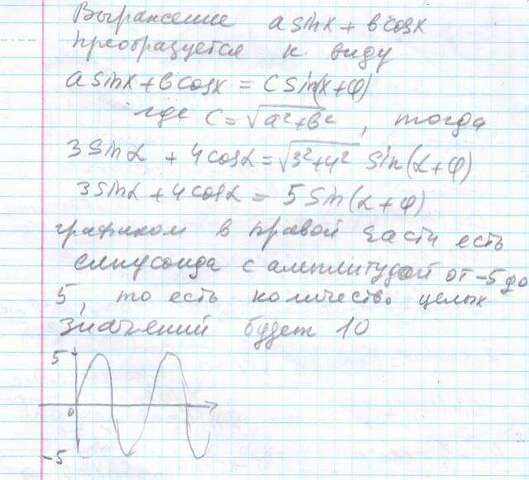 Выражение a sinx + b cosx
преобразуется к виду
a sinx + b cosx = c sin(x+φ)
где c = √a²+b² , тогда
3 sinα + 4 cosα = √3²+4² sin(α+φ)
3 sinα + 4 cosα = 5 sin(α+φ)
графиком в правой части есть
синусоида с амплитудой от -5 до
5, то есть количество целых
значений будет 10
5
0
-5